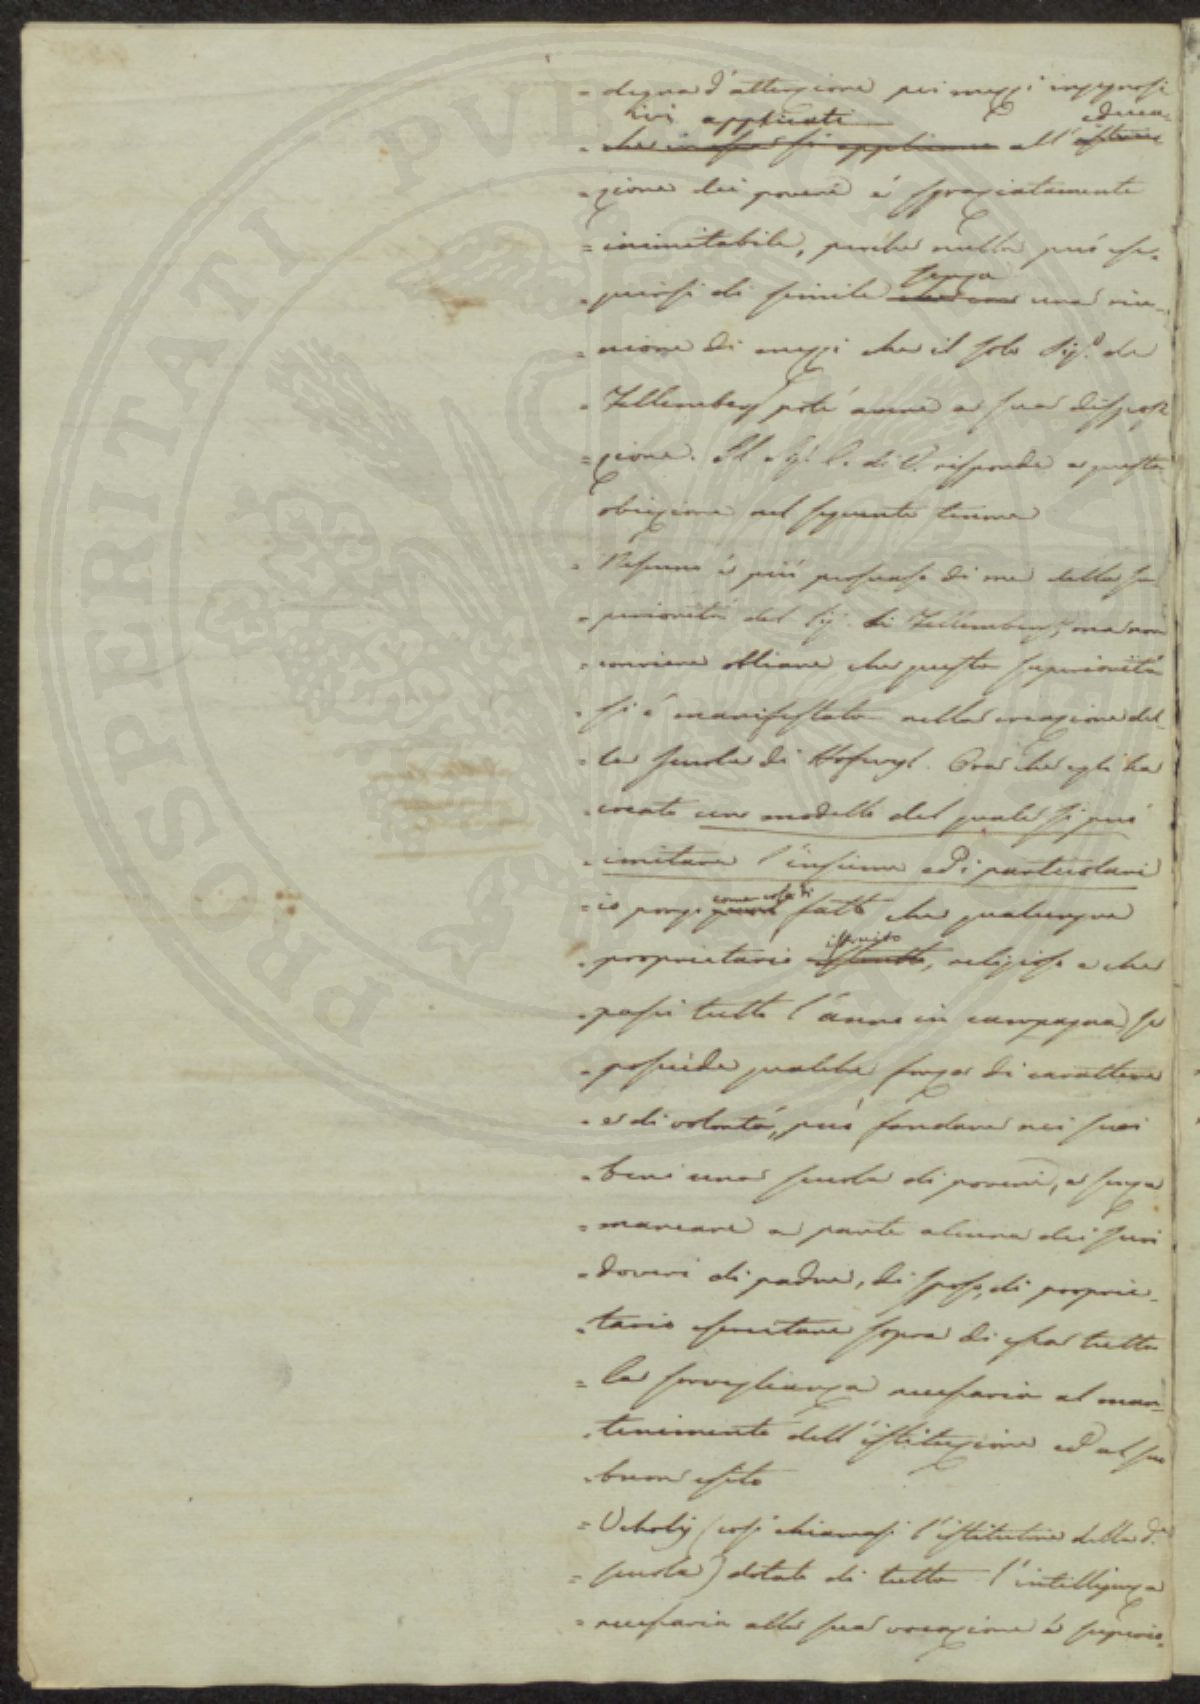 = degna d'attenzione pei mezzi ingegnosi
ivi applicati educa-
= che in essa si applicano all'
= zione dei poveri è sgraziatamente
= inimitabile, perchè nulla può ese-
senza
= guirsi di simile una riu-
= nione di mezzi che il solo Sig.r de
= Fellemberg potè avere a sua disposi
= zione. Il Sig.r C. di V. risponde a questa
obiezione nel seguente tenore
= Nessuno è più persuaso di me della su
= periorità del Sig. di Fellemberg, ma non
= conviene obliare che questa superiorità
= si è manifestata nella creazione del-
= la scuola di Hofwyl. Ora che egli ha
= creato un modello del quale si può
= imitare l'insieme ed i particolari
come cosa di
= io pongo fatto che qualunque
istruito
= proprietario, religioso e che
= passi tutto l'anno in campagna, se
= possiede qualche forza di carattere
= e di volontà, può fondare nei suoi
= beni una scuola di poveri, e senza
= mancare a parte alcuna dei suoi
= doveri di padre, di sposo, di proprie-
= tario esercitare sopra di essa tutta
= la sorveglianza necessaria al man-
= tenimento dell'istituzione ed al suo
= buon esito
= Vehrly (così chiamasi l'istitutore della d.a
= scuola) dotato di tutta l'intelligenza
= necessaria alla sua vocazione è superio-
PROSPERITATI PUBLICAE